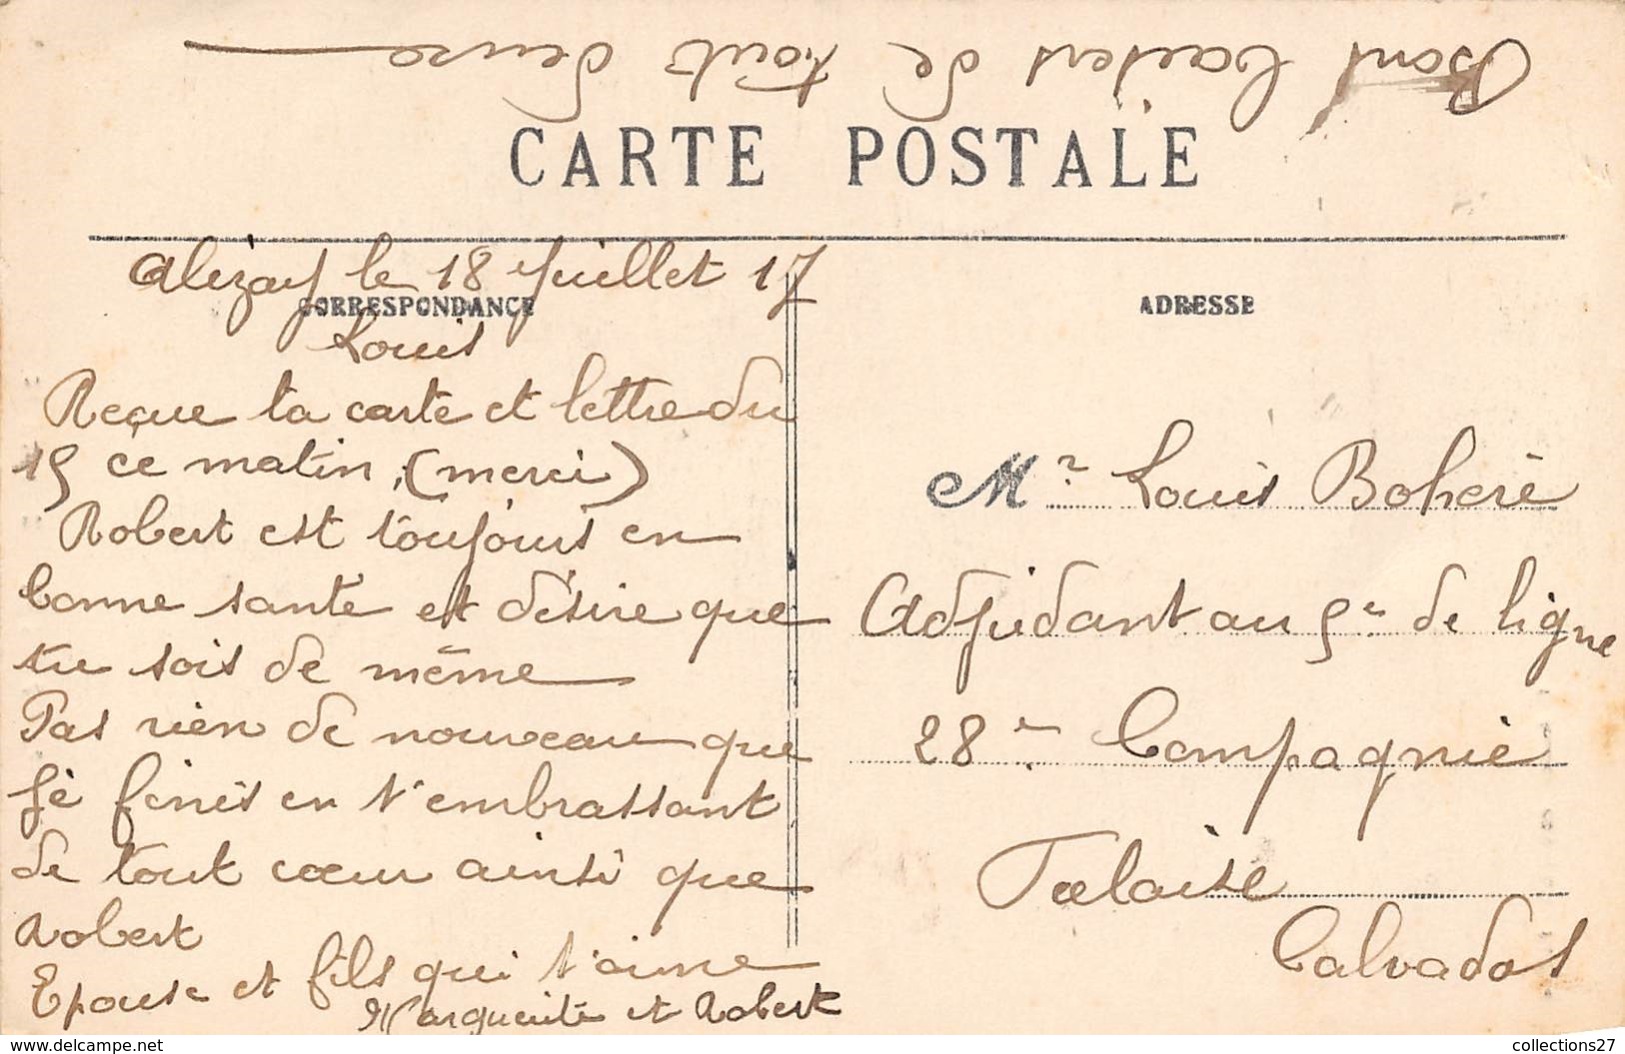 Bons baisers de tout deux
CARTE POSTALE
Alizay le 18 Juillet 17
CORRESPONDANCE
Louis
Reçue ta carte et lettre du
15 ce matin, (merci)
Robert est toujours en
bonne santé et désire que
tu sois de même
Pas rien de nouveau que
je finis en t'embrassant
de tout cœur ainsi que
Robert
Epouse et fils qui t'aime
Marguerite et Robert
ADRESSE
Mr Louis Boheré
Adjudant au 5e de ligne
28e Compagnie
Falaise
Calvados
collections27